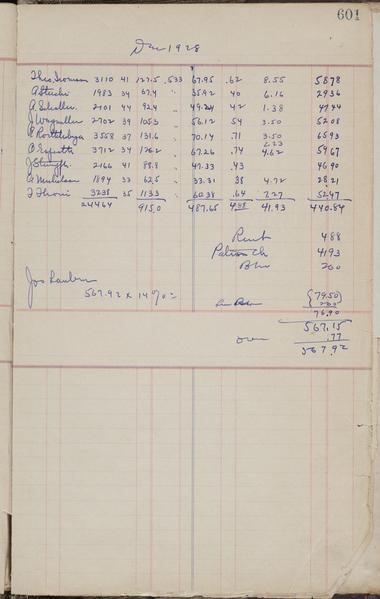 601
Dec 1928
3110 41 127.5 .533 67.95 .62 8.55 58.78
A Stucki 1983 34 67.4 " 35.92 40 6.16 29.36
A. 2101 44 92.4 " 49.24 42 1.38 47.44
J Wagmuller 2702 39 105.3 " 56.12 54 3.50 52.08
3558 37 131.6 " 70.14 .71 3.50 65.93
2.23
3712 34 126.2 " 67.26 .74 4.62 59.67
J 2166 41 88.8 " 47.33 .43 46.90
1894 33 62.5 " 33.31 38 4.72 28.21
F Thoni 3238 35 113.3 " 60.38 .64 7.27 52.47
24464 915.0 487.65 4.88 41.93 440.84
Rent 4.88
Patron Ch 41.93
200
Jos
567.92 x 14% =
{79.50}
76.90
567.15
over .77
567.92